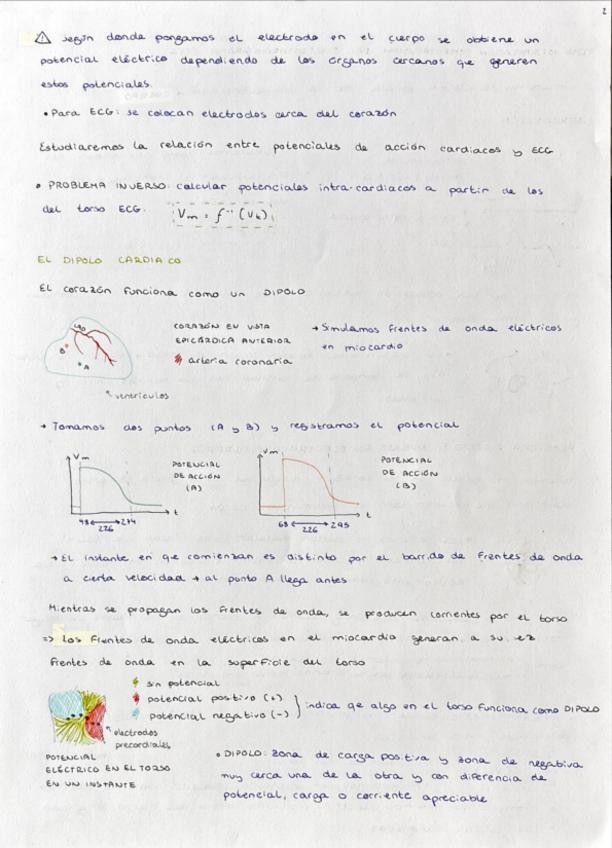 2
⚠ según donde pongamos el electrodo en el cuerpo se obtiene un
potencial eléctrico dependiendo de los órganos cercanos que generen
estos potenciales.
• Para ECG: se colocan electrodos cerca del corazón
Estudiaremos la relación entre potenciales de acción cardiacos y ECG
• PROBLEMA INVERSO: calcular potenciales intra-cardiacos a partir de los
del torso ECG. Vm = f⁻¹(Vk)
EL DIPOLO CARDIACO
El corazón funciona como un DIPOLO
LAD
B
A
CORAZÓN EN VISTA
EPICÁRDICA ANTERIOR
arteria coronaria
→ Simulamos frentes de onda eléctricos
en miocardio
ventrículos
→ Tomamos dos puntos (A y B) y registramos el potencial
Vm
POTENCIAL
DE ACCIÓN
(A)
t
48 ↔ 274
226
Vm
POTENCIAL
DE ACCIÓN
(B)
t
69 ↔ 295
226
→ El instante en que comienzan es distinto por el barrido de frentes de onda
a cierta velocidad → al punto A llega antes
Mientras se propagan los frentes de onda, se producen corrientes por el torso
=> Los frentes de onda eléctricos en el miocardio generan a su ez
frentes de onda en la superficie del torso
sin potencial
potencial positivo (+)
potencial negativo (-)
indica qe algo en el torso funciona como DIPOLO
electrodos
precordiales
POTENCIAL
ELÉCTRICO EN EL TORSO
EN UN INSTANTE
• DIPOLO: zona de carga positiva y zona de negativa
muy cerca una de la otra y con diferencia de
potencial, carga o corriente apreciable